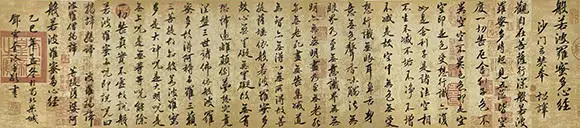 般若波羅蜜多心經
沙門玄奘奉 詔譯
觀自在菩薩行深般若波
羅蜜多時照見五蘊皆空
度一切苦厄舍利子色不
異空空不異色色即是
空空即是色受想行識亦復
如是舍利子是諸法空相
不生不滅不垢不淨不增
不減是故空中無色無受
想行識無眼耳鼻舌身
意無色聲香味觸法無
眼界乃至無意識界無無
明亦無無明盡乃至無老死
亦無老死盡無苦集滅道
無智亦無得以無所得故菩
提薩埵依般若波羅蜜多
故心無罣礙無罣礙故無有
恐怖遠離顛倒夢想究竟
涅槃三世諸佛依般若波羅
蜜多故得阿耨多羅三藐
三菩提故知般若波羅蜜
多是大神咒是大明咒是
無上咒是無等等咒能除
一切苦真實不虛故說般若
波羅蜜多咒即說咒曰
揭諦揭諦 波羅揭諦
波羅僧揭諦 菩提薩婆訶
般若波羅蜜多心經
乙巳年
書